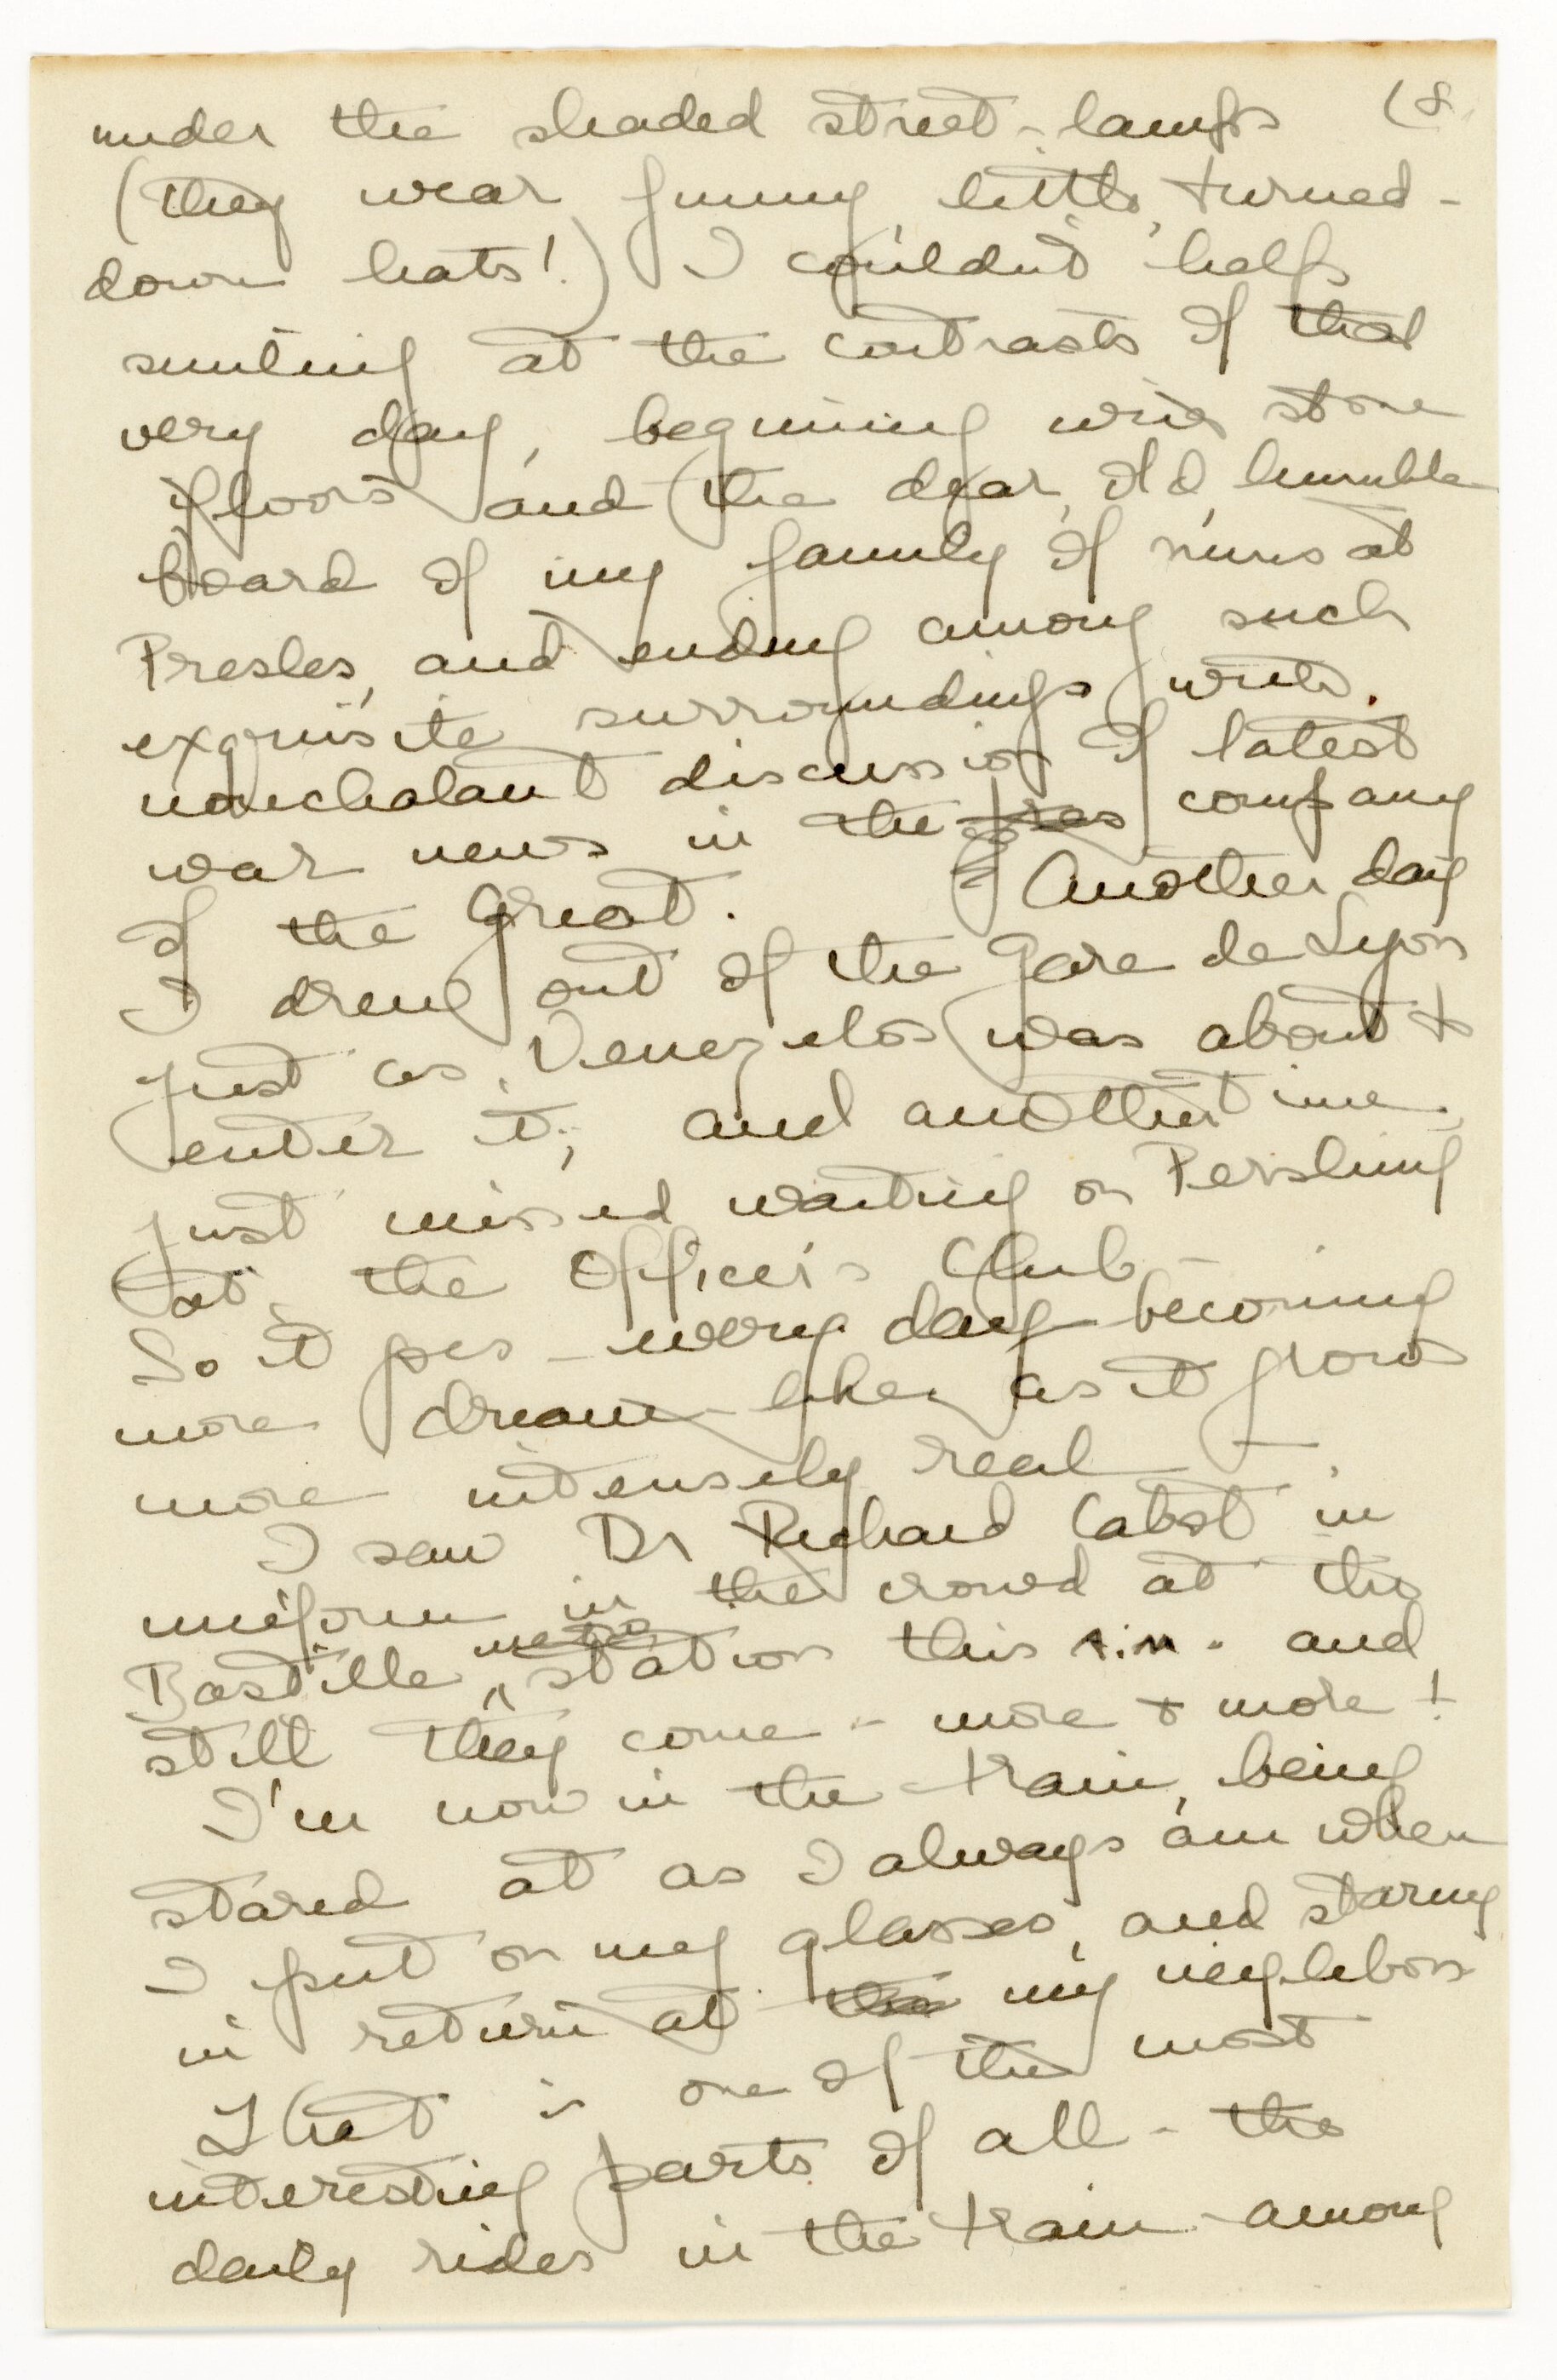 under the shaded street-lamps (8.
(they wear funny, little, turned-
down hats!) I couldn't help
smiling at the contrasts of that
very day, beginning with stone
floors and the dear, old, humble
board of my family of nuns at
Presles, and ending among such
exquisite surroundings with
nonchalant discussion of latest
war news in the company
of the Great. Another day
I drew out of the Gare de Lyon
just as Venezelos was about to
enter it; and another time
just missed waiting on Pershing
at the Officers Club.
So it goes - every day becoming
more dream-like, as it grows
more intensely real -.
I saw Dr Richard Cabot in
uniform in the crowd at the
Bastille metro station this A.M. and
still they come - more & more!
I'm now in the train, being
stared at as I always am when
I put on my glasses, and staring
in return at the my neighbors
That is one of the most
interesting parts of all - the
daily rides in the train - among